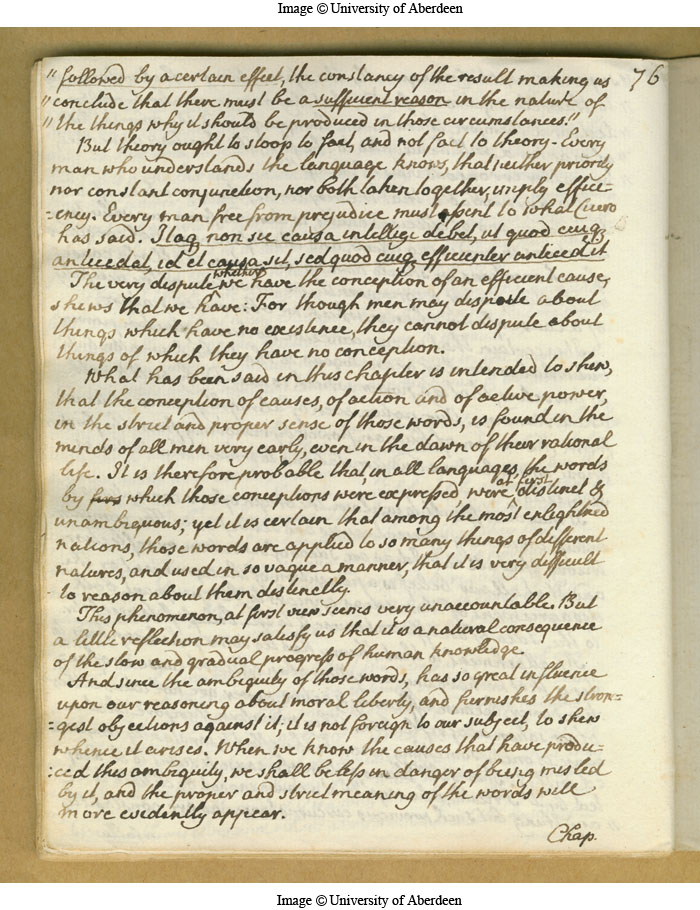 Image © University of Aberdeen
76
" followed by a certain effect, the constancy of the result making us
" conclude that there must be a sufficient reason in the nature of
" the things why it should be produced in those circumstances."
But theory ought to stoop to fact, and not fact to theory. Every
man who understands the language knows, that neither priority
nor constant conjunction, nor both taken together, imply effici-
=ency. Every man free from prejudice must assent to what Cicero
has said. Itaq non sic causa intelligi debet, ut quod cuiq
antecedat, id et causa sit, sed quod cuiq efficienter antecedit
The very dispute whether we have the conception of an efficient cause,
shews that we have: For though men may dispute about
things which have no existence, they cannot dispute about
things of which they have no conception.
What has been said in this chapter is intended to shew,
that the conception of causes, of action and of active power,
in the strict and proper sense of those words, is found in the
minds of all men very early, even in the dawn of their rational
life. It is therefore probable that, in all languages, the words
by which those conceptions were expressed, were at first distinct &
unambiguous; yet it is certain that among the most enlightned
nations, those words are applied to so many things of different
natures, and used in so vague a manner, that it is very difficult
to reason about them distinctly.
This phenomenon, at first view seems very unaccountable. But
a little reflection may satisfy us that it is a natural consequence
of the slow and gradual progress of human knowledge.
And since the ambiguity of those words, has so great influence
upon our reasoning about moral liberty, and furnishes the stron=
=gest objections against it; it is not foreign to our subject, to shew
whence it arises. When we know the causes that have produ=
=ced this ambiguity, we shall be less in danger of being misled
by it, and the proper and strict meaning of the words will
more evidently appear.
Chap.
Image © University of Aberdeen